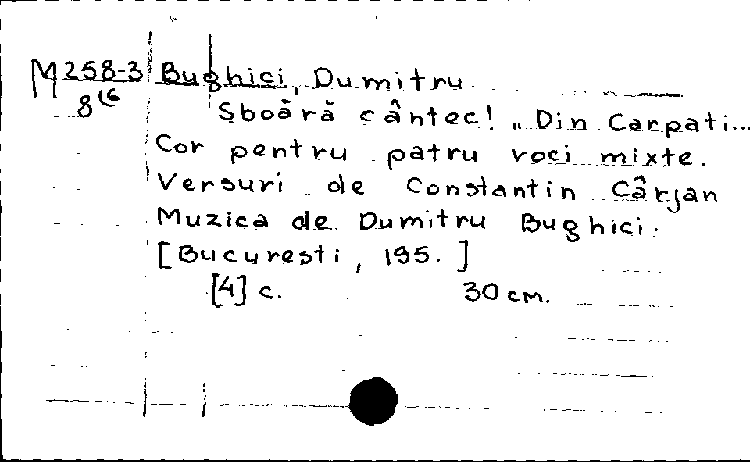 M258-3 Bughici, Dumitru
8 Sboără cântec! „Din Carpati...
Cor pentru patru voci mixte.
Versuri de Constantin Cârjan
Muzica de Dumitru Bughici.
[Bucuresti, 195. ]
[4] c. 30 cm.